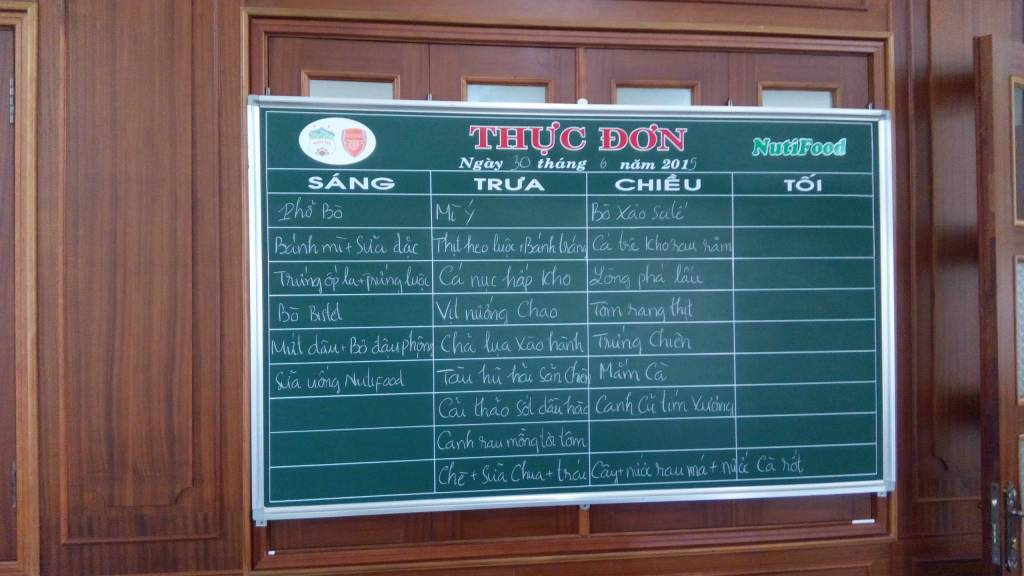 THỰC ĐƠN
NutiFood
Ngày 30 tháng 6 năm 2015
SÁNG TRƯA CHIỀU TỐI
Phở Bò Mì Ý Bò Xào Satế
Bánh mì + Sữa đặc Thịt heo luộc + Bánh tráng Cá trê kho rau răm
Trứng ốp la + trứng luộc Cá nục hấp kho Lòng phá lấu
Bò Bistel Vịt nướng Chao Tôm rang thịt
Mứt dâu + Bơ đậu phộng Chả lụa Xào hành Trứng Chiên
Sữa uống Nutifood Tàu hũ hải sản Chiên Mắm Cà
Cải thảo sốt dầu hào Canh Củ tím Xương
Canh rau mồng tơi tôm
Chè + Sữa Chua + trái Cây + nước rau má + nước Cà rốt